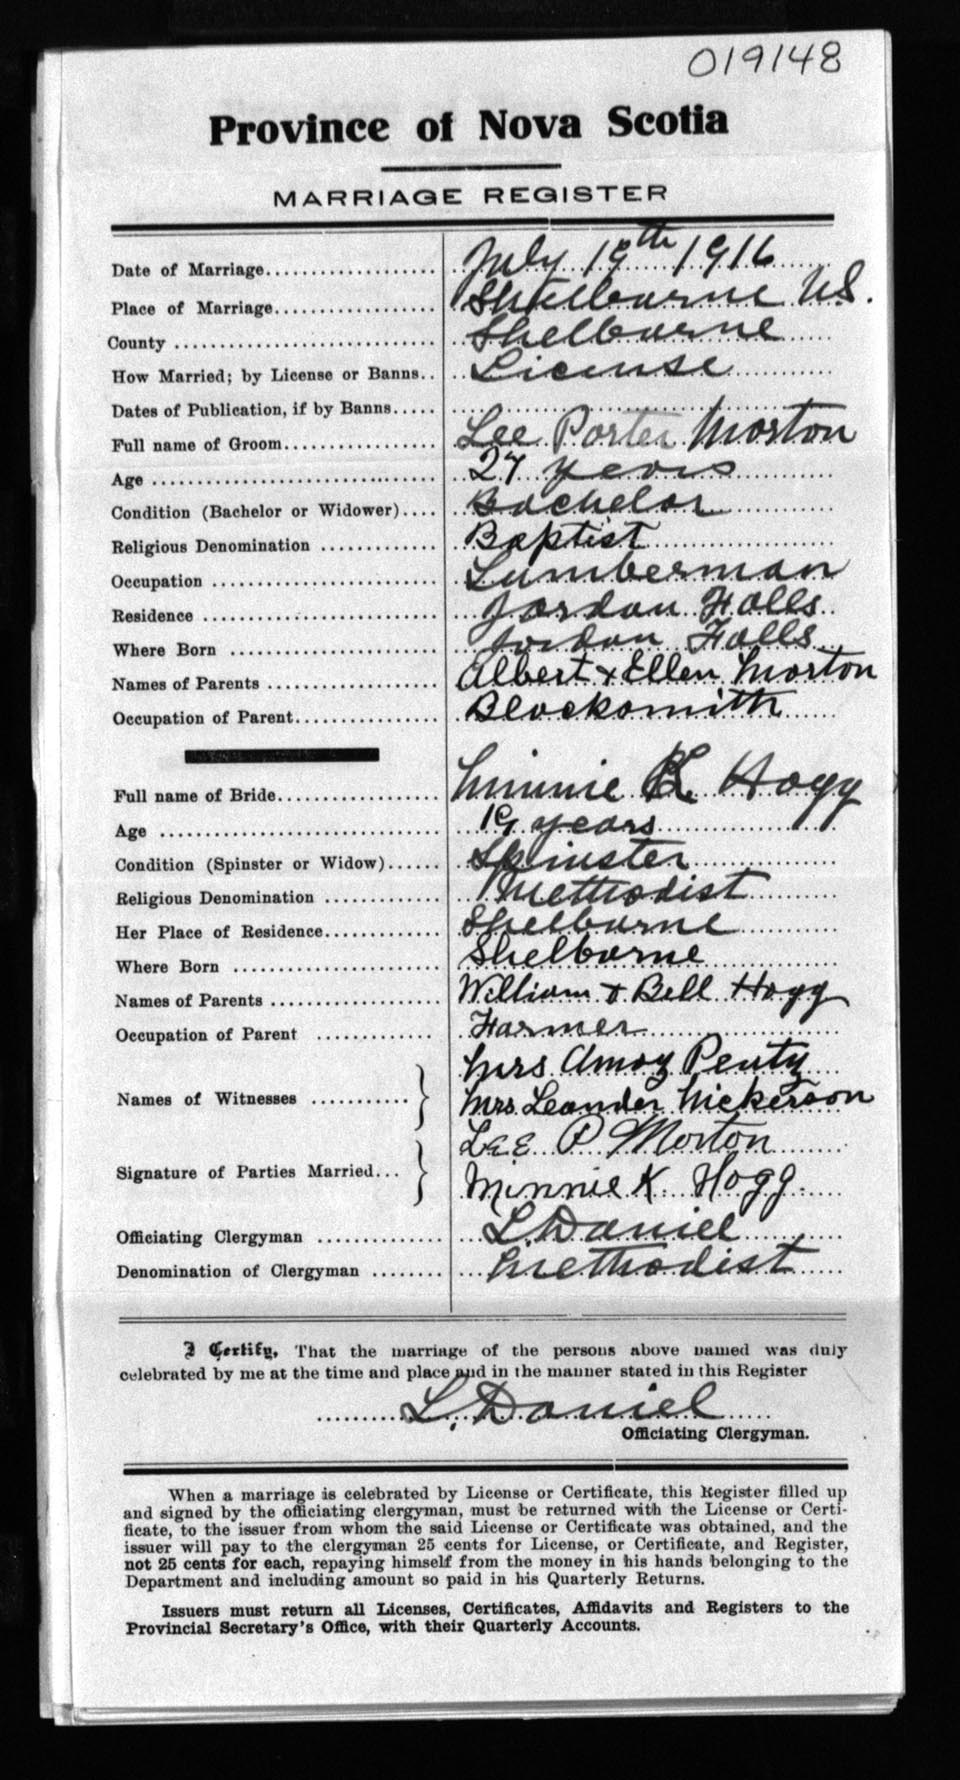 019148
Province of Nova Scotia
MARRIAGE REGISTER
Date of Marriage.................... July 19th 1916
Place of Marriage................... Shelburne N.S.
County ............................... Shelburne
How Married; by License or Banns.. License
Dates of Publication, if by Banns.....
Full name of Groom.................. Lee Porter Morton
Age .................................. 27 years
Condition (Bachelor or Widower).... Bachelor
Religious Denomination .............. Baptist
Occupation ........................... Lumberman
Residence ............................ Jordan Falls
Where Born ......................... Jordan Falls
Names of Parents .................... Albert & Ellen Morton
Occupation of Parent................. Blacksmith
Full name of Bride................... Minnie K Hogg
Age .................................. 19 years
Condition (Spinster or Widow)...... Spinster
Religious Denomination .............. Methodist
Her Place of Residence.............. Shelburne
Where Born ......................... Shelburne
Names of Parents .................... William & Bell Hogg
Occupation of Parent ............... Farmer
Mrs Amoz Penty
Names of Witnesses ...........
Mrs. Leander Nickerson
Lee P Morton
Signature of Parties Married...
Minnie K. Hogg.
Officiating Clergyman ............... L. Daniel
Denomination of Clergyman ......... Methodist
I Certify, That the marriage of the persons above named was duly
celebrated by me at the time and place and in the manner stated in this Register
L. Daniel
Officiating Clergyman.
When a marriage is celebrated by License or Certificate, this Register filled up
and signed by the officiating clergyman, must be returned with the License or Certi-
ficate, to the issuer from whom the said License or Certificate was obtained, and the
issuer will pay to the clergyman 25 cents for License, or Certificate, and Register,
not 25 cents for each, repaying himself from the money in his hands belonging to the
Department and including amount so paid in his Quarterly Returns.
Issuers must return all Licenses, Certificates, Affidavits and Registers to the
Provincial Secretary's Office, with their Quarterly Accounts.